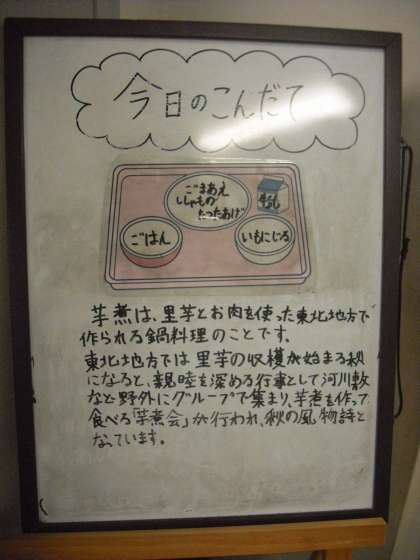 今日のこんだて
ごまあえ
ししゃもの
たつたあげ
牛乳
ごはん
いもにじる
芋煮は、里芋とお肉を使った東北地方で
作られる鍋料理のことです。
東北地方では里芋の収穫が始まる秋
になると、親睦を深める行事として河川敷
など野外にグループで集まり、芋煮を作って
食べる「芋煮会」が行われ、秋の風物詩と
なっています。